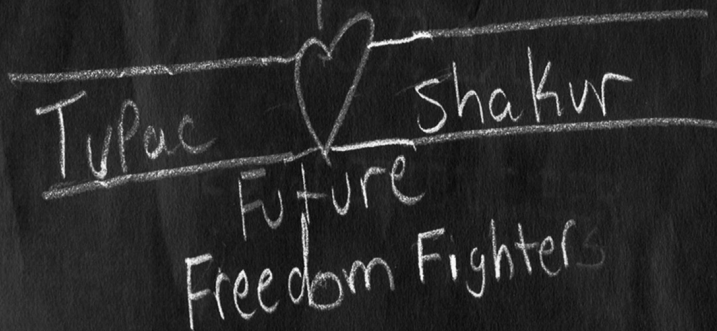 Tupac Shakur
Future
Freedom Fighters